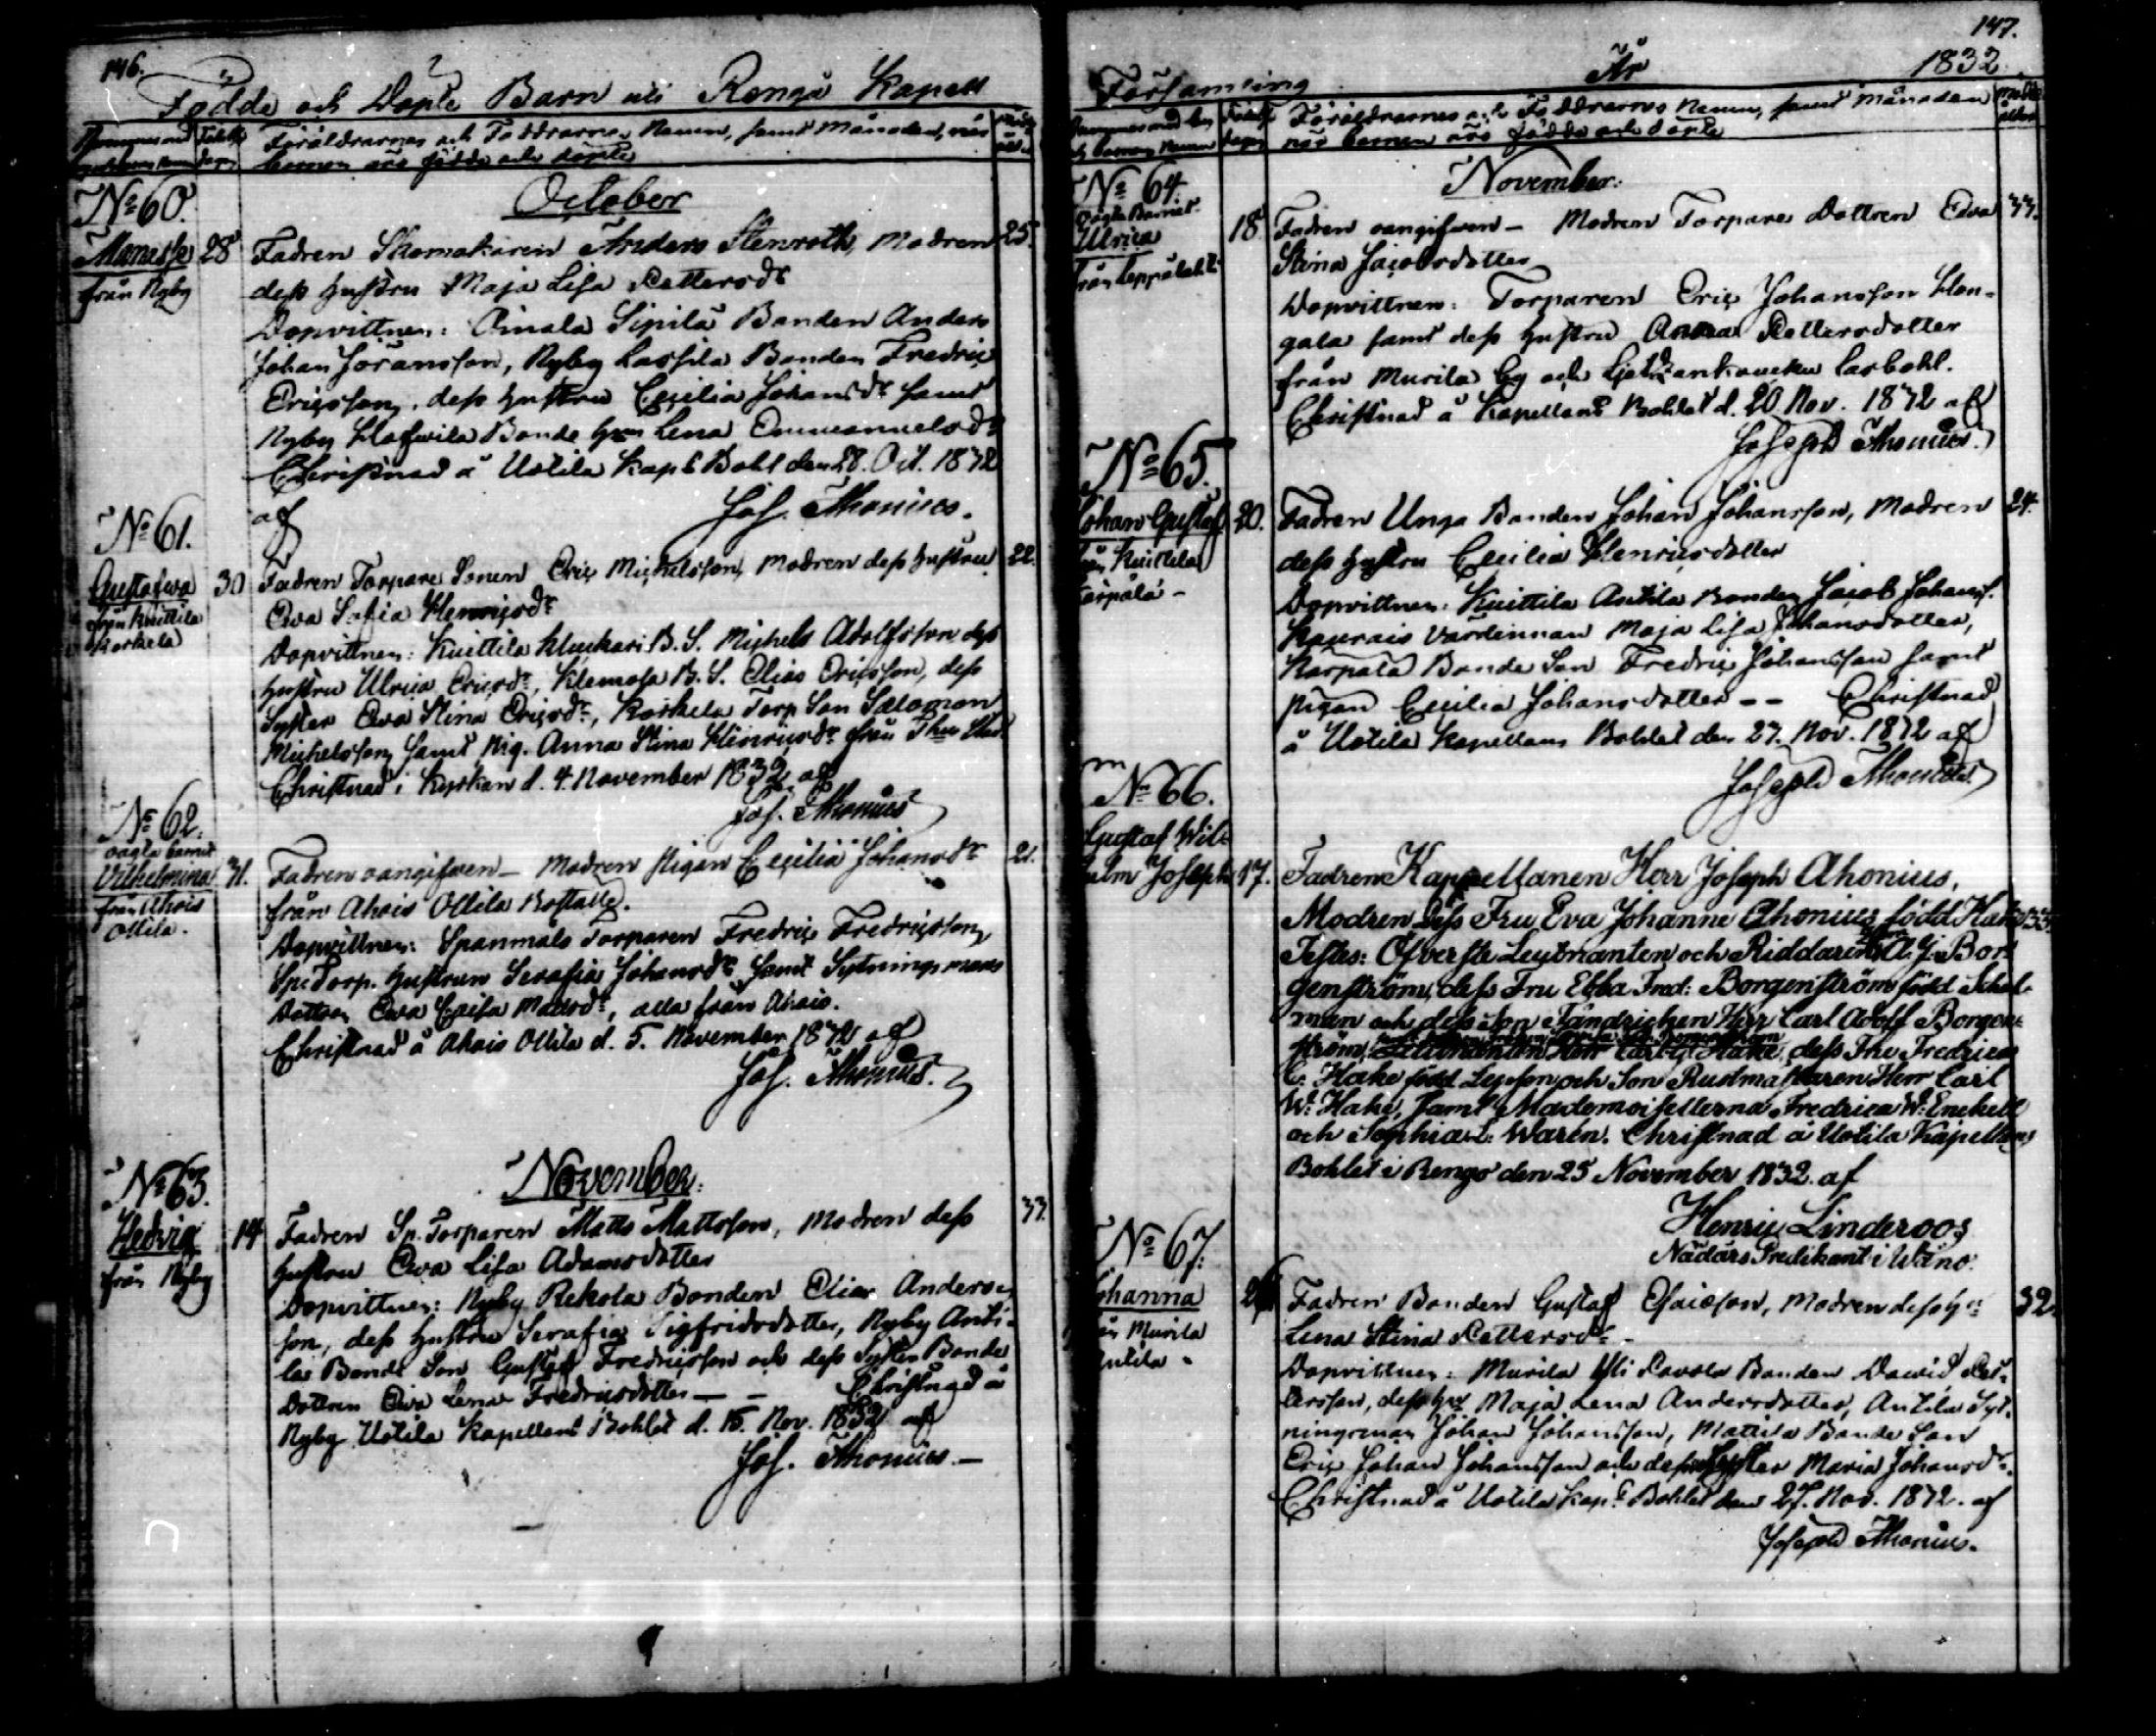 146.
Födde och Döpte Barn uti Rengo Kapell
Föräldrarnes och Faddrarnes Namn, samt Månaden, när
barnen äro födde och döpte
October
No 60.
Manasse 28
från Nyby
Fadren Skomakaren Anders Stenroth, Modren 25.
dess hustru Maja Lisa Pettersdr
Dopvittnen: Sipilä Bonden Anders
Johan Göransson, Nyby Lassila Bonden Fredric
Ericsson, dess hustru Cecilia Johansdr samt
Nyby Bonde Lena Emmanuelsdr
Christnad å Uotila Kapl. Bohl den 28. Oct. 1832
af Jos. Ahonius.
No 61.
Gustafwa 30
från Kuittila
Korkela
Fadren Torpare Sonen Eric Michelsson, Modren dess hustru 22.
Eva Sofia Henricsdr
Dopvittnen: Kuittila B. S. Michels Adolfsson dess
hustru Ulrica Ericsdr, Klemola B. S. Elias Ericsson, dess
Syster Eva Stina Ericsdr, Korkela Torp Son Salomon
Michelsson, samt Pig. Anna Stina Henricsdr från
Christnad i Kyrkan d. 4. November 1832. af
Jos. Ahonius
No 62.
oägta barnet
Vilhelmina 31.
från Ahois
Ottila.
Fadren oangifwen – Modren Pigan Cecilia Johansdr 21.
från Ahois Ottila Boställe.
Dopvittnen: Spanmåls Torparen Fredric Fredricsson,
Sp. Torp. hustrun Serafia Johansdr samt Sytningsmans
Dottren Eva Caisa Mattsdr, alla från Ahois.
Christnad å Ahois Ottila d. 5. November 1832 af
Jos. Ahonius.
November:
No 63.
Hedvig 14
från Nyby
Fadren Sp. Torparen Matts Mattsson, Modren dess 33.
hustru Eva Lisa Adamsdotter
Dopvittnen: Nyby Rekola Bonden Elias Anders-
son, dess hustru Serafia Sigfridsdotter, Nyby Anti-
la Bonde Son Gustaf Fredricsson och dess Syster Bonde
Dottren Eva Lena Fredricsdotter – – Christnad å
Nyby Uotila Kapellans Bohlet d. 15. Nov. 1832 af
Jos. Ahonius. –
147.
Församling År 1832.
Föräldrarnes och Faddrarnes Namn, samt Månaden
när barnen äro födde och döpte
November:
No 64.
oägta Barnet
Ulrica 18.
från Leppälaht
Fadren oangifwen – Modren Torpare Dottren Eva 33.
Stina Jacobsdotter
Dopvittnen: Torparen Eric Johansson Hon-
gala samt dess hustru Anna Pettersdotter
från Murila By och
Christnad å Kapellans Bohlet d. 20. Nov. 1832 af
Joseph Ahonius.
No 65.
Johan Gustaf 20.
från Kuittila
Karpala –
Fadren Unga Bonden Johan Johansson, Modren 24.
dess hustru Cecilia Henricsdotter
Dopvittnen: Kuittila Antila Bonden Jacob Johanss.
Maja Lisa Johansdotter,
Karpala Bonde Son Fredric Johansson samt
Pigan Cecilia Johansdotter – – Christnad
å Uotila Kapellans Bohlet den 27. Nov. 1832 af
Joseph Ahonius
No 66.
Gustaf Wil-
helm Joseph 17.
Fadren Kappellanen Herr Joseph Ahonius,
Modren dess Fru Eva Johanne Ahonius född Hake 33.
Testes: Öfverste Leutnanten och Riddaren A. J. Bor-
genström, dess Fru Ebba Fred: Borgenström född Schul-
man och dess Son Fändrichen Herr Carl Adolf Borgen-
ström, Leutnanten Herr Carl G. Hake, dess Fru Fredrica
C. Hake född och Son Rustmästaren Herr Carl
W. Hake, samt Mademoisellerna Fredrica W. Enehelt
och Sophia L. Waren. Christnad å Uotila Kapellans
Bohlet i Rengo den 25 November 1832. af
Henric Linderoos
Nådårs Predikant i Wånå.
No 67.
Johanna
från Murila
Antila.
Fadren Bonden Gustaf Esaiasson, Modren dess hu 32.
Lena Stina Pettersdr –
Dopvittnen: Murila Yli Pavola Bonden David Pet-
tersson, dess hu Maja Lena Andersdotter, Antila Syt-
ningsman Johan Johansson, Mattila Bonde Son
Eric Johan Johansson och dess Syster Maria Johansdr.
Christnad å Uotila Kapl. Bohlet den 27. Nov. 1832. af
Joseph Ahonius.